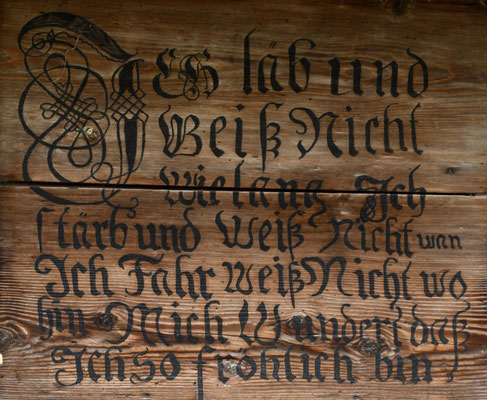 ICh läb und
Weiß Nicht
wie lang Ich
stärb und Weiß Nicht wan
Ich Fahr Weiß Nicht wo
hin Mich Wundert daß
Ich so fröhlich bin